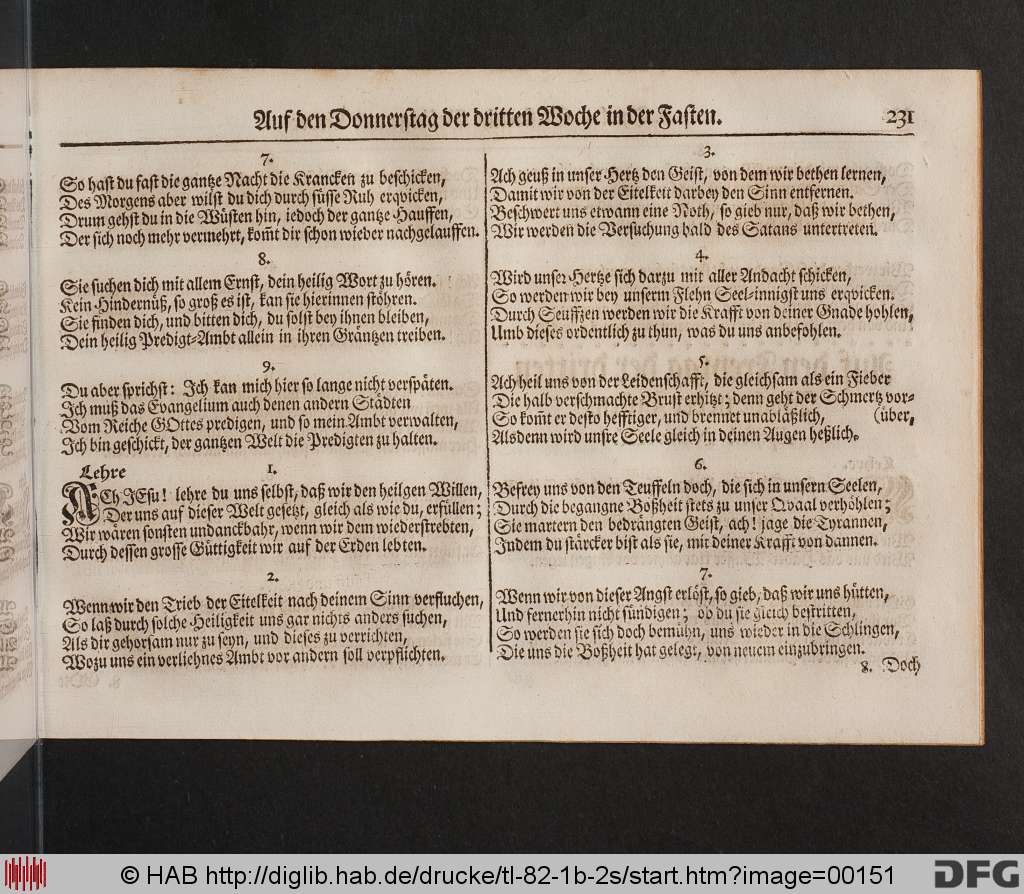 Auf den Donnerstag der dritten Woche in der Fasten. 231
7.
So hast du fast die gantze Nacht die Krancken zu beschicken,
Des Morgens aber wilst du dich durch süsse Ruh erqvicken,
Drum gehst du in die Wüsten hin, iedoch der gantze Hauffen,
Der sich noch mehr vermehrt, kom̃t dir schon wieder nachgelauffen.
8.
Sie suchen dich mit allem Ernst, dein heilig Wort zu hören.
Kein Hindernüß, so groß es ist, kan sie hierinnen stöhren.
Sie finden dich, und bitten dich, du solst bey ihnen bleiben,
Dein heilig Predigt-Ambt allein in ihren Gräntzen treiben.
9.
Du aber sprichst: Ich kan mich hier so lange nicht verspäten.
Ich muß das Evangelium auch denen andern Städten
Vom Reiche GOttes predigen, und so mein Ambt verwalten,
Ich bin geschickt, der gantzen Welt die Predigten zu halten.
Lehre 1.
ACh JEsu! lehre du uns selbst, daß wir den heilgen Willen,
Der uns auf dieser Welt gesetzt, gleich als wie du, erfüllen;
Wir wären sonsten undanckbahr, wenn wir dem wiederstrebten,
Durch dessen grosse Güttigkeit wir auf der Erden lebten.
2.
Wenn wir den Trieb der Eitelkeit nach deinem Sinn verfluchen,
So laß durch solche Heiligkeit uns gar nichts anders suchen,
Als dir gehorsam nur zu seyn, und dieses zu verrichten,
Wozu uns ein verliehnes Ambt vor andern soll verpflichten.
3.
Ach geuß in unser Hertz den Geist, von dem wir bethen lernen,
Damit wir von der Eitelkeit darbey den Sinn entfernen.
Beschwert uns etwann eine Noth, so gieb nur, daß wir bethen,
Wir werden die Versuchung bald des Satans untertreten.
4.
Wird unser Hertze sich darzu mit aller Andacht schicken,
So werden wir bey unserm Flehn Seel-innigst uns erqvicken.
Durch Seuffzen werden wir die Krafft von deiner Gnade hohlen,
Umb dieses ordentlich zu thun, was du uns anbefohlen.
5.
Ach heil uns von der Leidenschafft, die gleichsam als ein Fieber
Die halb verschmachte Brust erhitzt; denn geht der Schmertz vor-
So kom̃t er desto hefftiger, und brennet unabläßlich, (über,
Alsdenn wird unsre Seele gleich in deinen Augen heßlich.
6.
Befrey uns von den Teuffeln doch, die sich in unsern Seelen,
Durch die begangne Boßheit stets zu unser Qvaal verhöhlen;
Sie martern den bedrängten Geist, ach! jage die Tyrannen,
Indem du stärcker bist als sie, mit deiner Krafft von dannen.
7.
Wenn wir von dieser Angst erlöst, so gieb, daß wir uns hütten,
Und fernerhin nicht sündigen; ob du sie gleich bestritten,
So werden sie sich doch bemühn, uns wieder in die Schlingen,
Die uns die Boßheit hat gelegt, von neuem einzubringen.
8. Doch
© HAB http://diglib.hab.de/drucke/tl-82-1b-2s/start.htm?image=00151
DFG